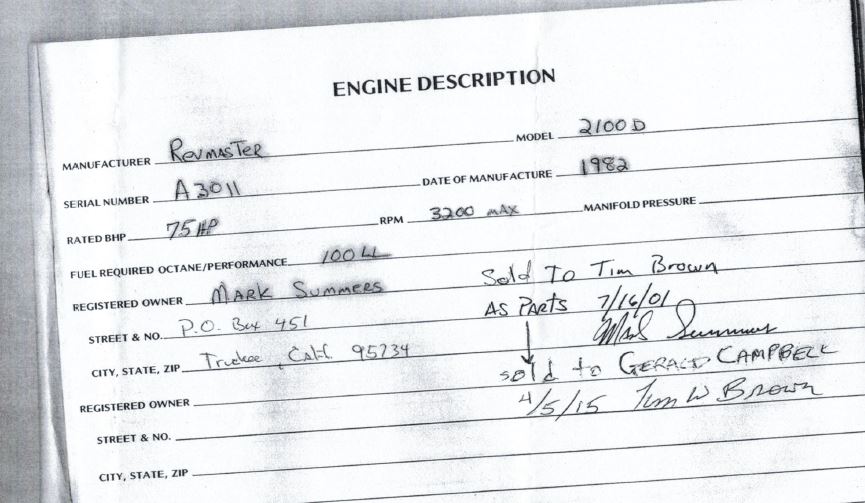 ENGINE DESCRIPTION
MANUFACTURER RevmasTer MODEL 2100 D
SERIAL NUMBER A 3011 DATE OF MANUFACTURE 1982
RATED BHP 75 HP RPM 3200 mAX MANIFOLD PRESSURE
FUEL REQUIRED OCTANE/PERFORMANCE 100 LL
REGISTERED OWNER MARK Summers
Sold To Tim Brown
AS PARTS 7/16/01
STREET & NO. P.O. Box 451
Mark Summers
CITY, STATE, ZIP Truckee, Calif. 95734
sold to GERALD CAMPBELL
REGISTERED OWNER
4/5/15 Tim W Brown
STREET & NO.
CITY, STATE, ZIP